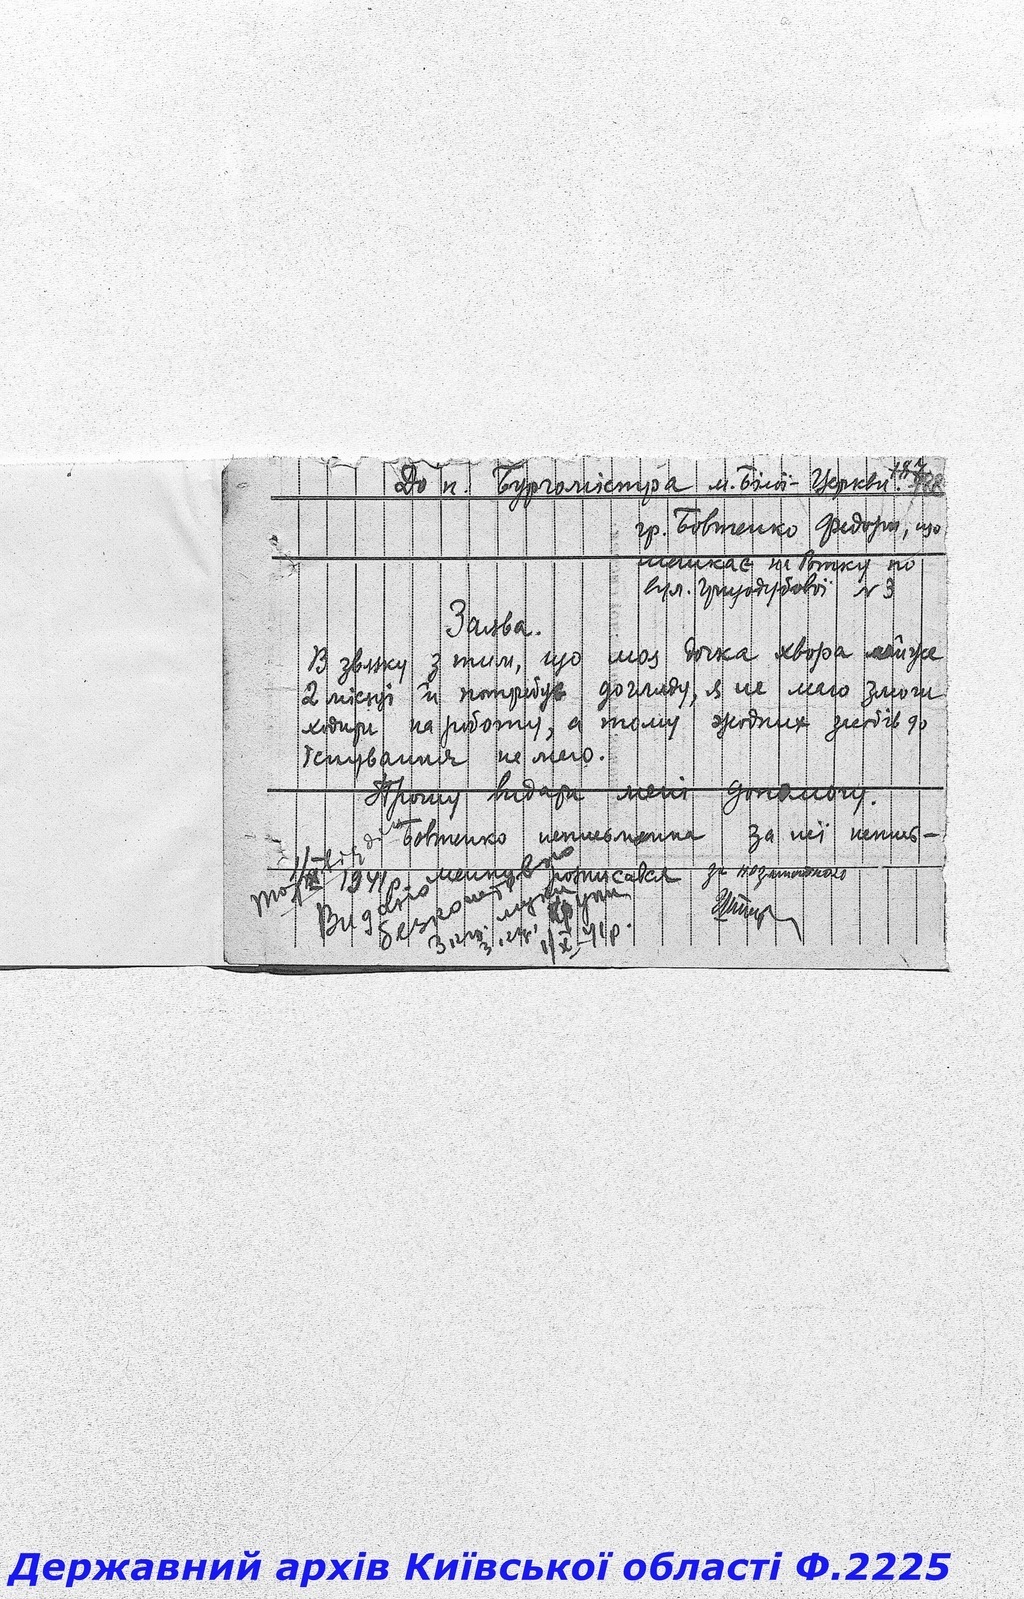 До п. Бургомістра м. Білої-Церкви.
187
гр. Бовтенко Федори, що
мешкає на Ротку по
вул. Гризодубової № 3
Заява.
В звязку з тим, що моя дочка хвора майже
2 місяці й потребує догляду, я не маю змоги
ходити на роботу, а тому жодних засобів до
існування не маю.
Прошу видати мені допомогу.
Бовтенко неписьменна за неї непись-
менну розписався
1941р.
Видано
безкоштовно
3 кгр. муки
3 кгр.
1/X-41р.
Державний архів Київської області Ф.2225